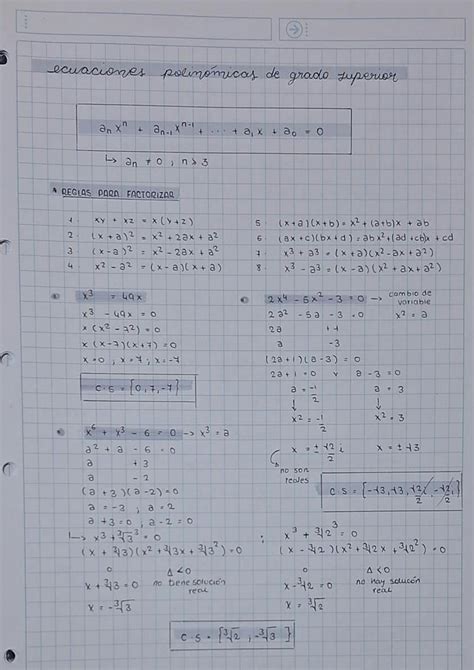 ecuaciones polinómicas de grado superior
aₙxⁿ + aₙ₋₁xⁿ⁻¹ + ... + a₁x + a₀ = 0
↳ aₙ ≠ 0 ; n > 3
REGLAS PARA FACTORIZAR
1. xy + xz = x(y+z)
2. (x+a)² = x² + 2ax + a²
3. (x-a)² = x² - 2ax + a²
4. x² - a² = (x-a)(x+a)
5. (x+a)(x+b) = x² + (a+b)x + ab
6. (ax+c)(bx+d) = abx² + (ad+cb)x + cd
7. x³ + a³ = (x+a)(x² - ax + a²)
8. x³ - a³ = (x-a)(x² + ax + a²)
x³ = 49x
x³ - 49x = 0
x(x² - 7²) = 0
x(x-7)(x+7) = 0
x = 0 ; x = 7 ; x = -7
C.S = {0, 7, -7}
2x⁴ - 5x² - 3 = 0 → cambio de variable
2a² - 5a - 3 = 0 x² = a
2a +1
a -3
(2a+1)(a-3) = 0
2a + 1 = 0 v a - 3 = 0
a = -1/2 a = 3
↓ ↓
x² = -1/2 x² = 3
x = ± √2/2 i x = ± √3
no son reales
C.S = {-√3, √3, √2/2 i, -√2/2 i}
x⁶ + x³ - 6 = 0 → x³ = a
a² + a - 6 = 0
a +3
a -2
(a+3)(a-2) = 0
a = -3 ; a = 2
a + 3 = 0 ; a - 2 = 0
↳ x³ + ∛3³ = 0 ; x³ + ∛2³ = 0
(x + ∛3)(x² + ∛3x + ∛3²) = 0
(x - ∛2)(x² + ∛2x + ∛2²) = 0
0 Δ < 0 0 Δ < 0
x + ∛3 = 0 no tiene solución real
x - ∛2 = 0 no hay solución real
x = -∛3 x = ∛2
C.S = {∛2, -∛3}